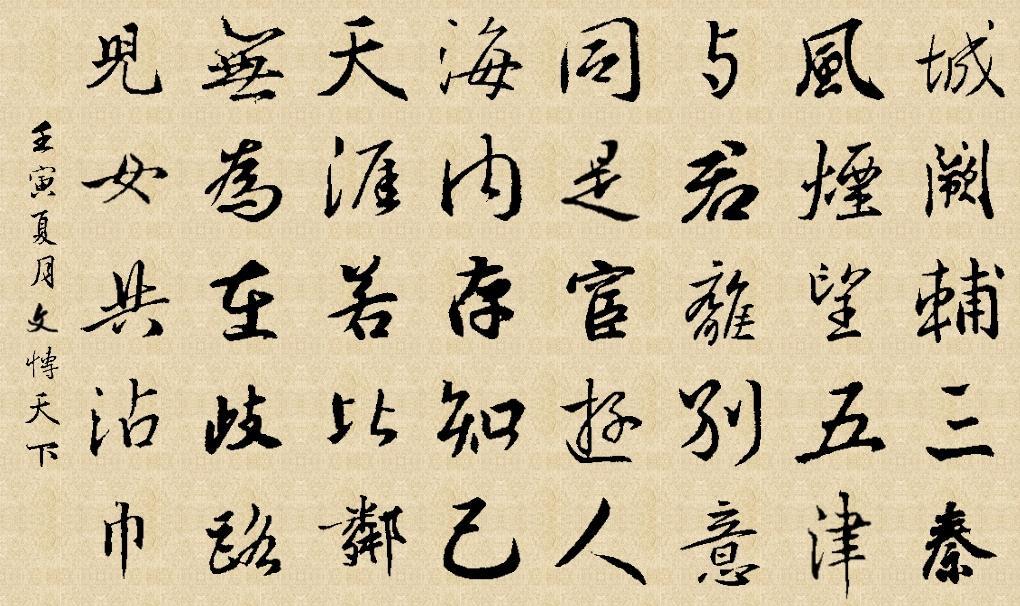 城闕輔三秦
風煙望五津
与君離別意
同是宦遊人
海內存知己
天涯若比鄰
無為在歧路
兒女共沾巾
壬寅夏月文博天下